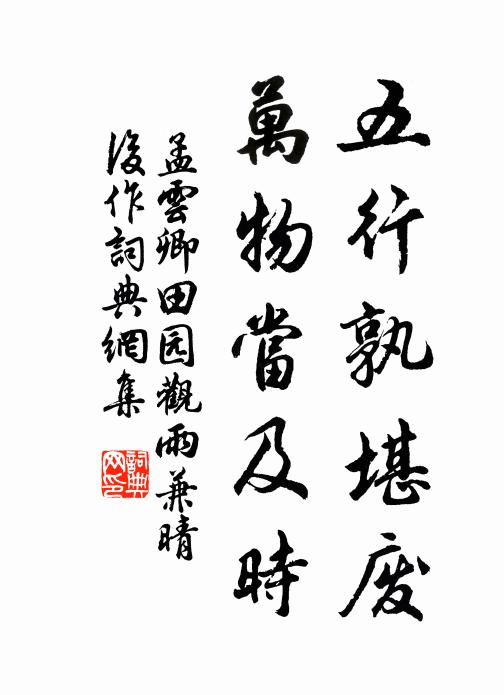 五行孰堪廢
萬物當及時
孟雲卿田园觀雨兼晴
後作詞典網集
詞典
网印